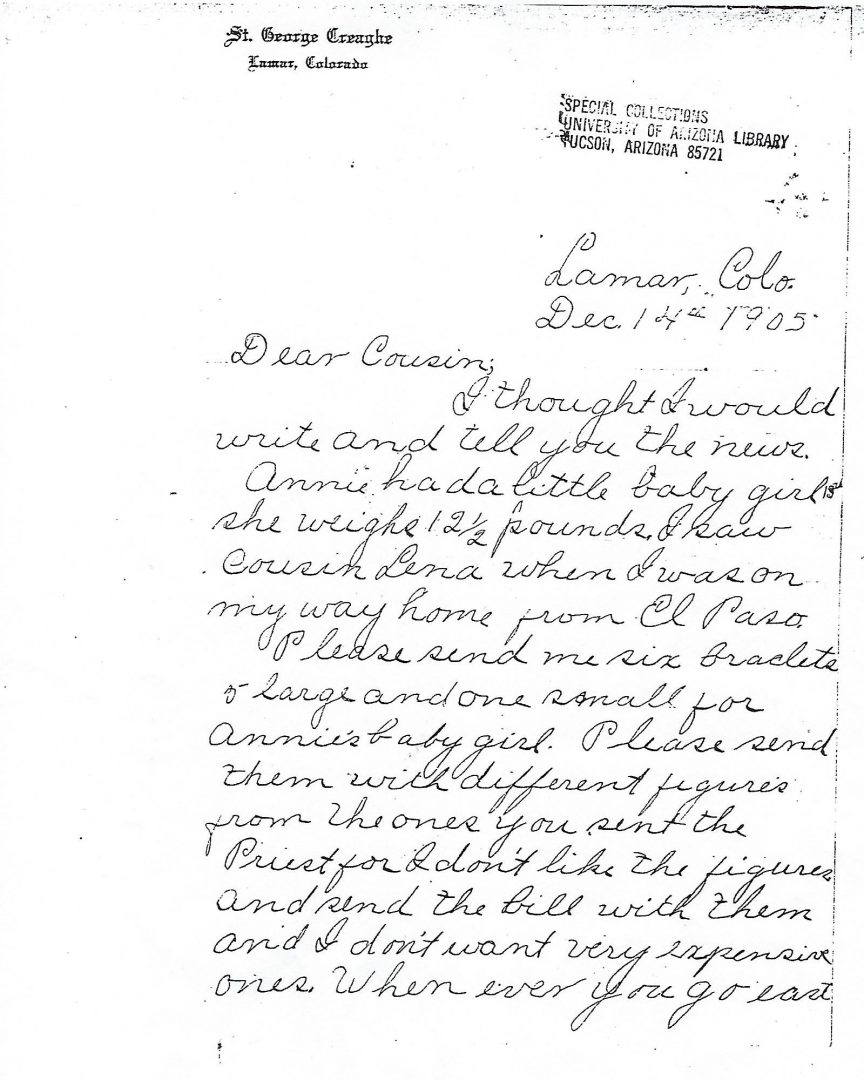 St. George Creaghe
Lamar, Colorado
SPECIAL COLLECTIONS
UNIVERSITY OF ARIZONA LIBRARY
TUCSON, ARIZONA 85721
Lamar, Colo.
Dec. 14th 1905
Dear Cousin;
I thought I would
write and tell you the news.
Annie had a little baby girl 13th
she weighs 12 1/2 pounds. I saw
Cousin Lena when I was on
my way home from El Paso.
Please send me six braclets
5 large and one small for
Annie's baby girl. Please send
them with different figures
from the ones you sent the
Priest for I don't like the figures
and send the bill with them
and I don't want very expensive
ones. When ever you go east